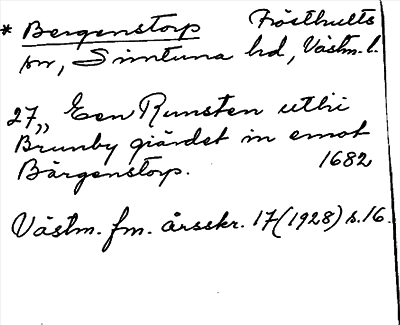 * Bergenstorp Frösthults
sn, Simtuna hd, Västm. l.
27,, Een Runsten uthi
Brunby giärdet in emot
Bärgenstorp. 1682
Västm. fm. årsskr. 17 (1928) s. 16.